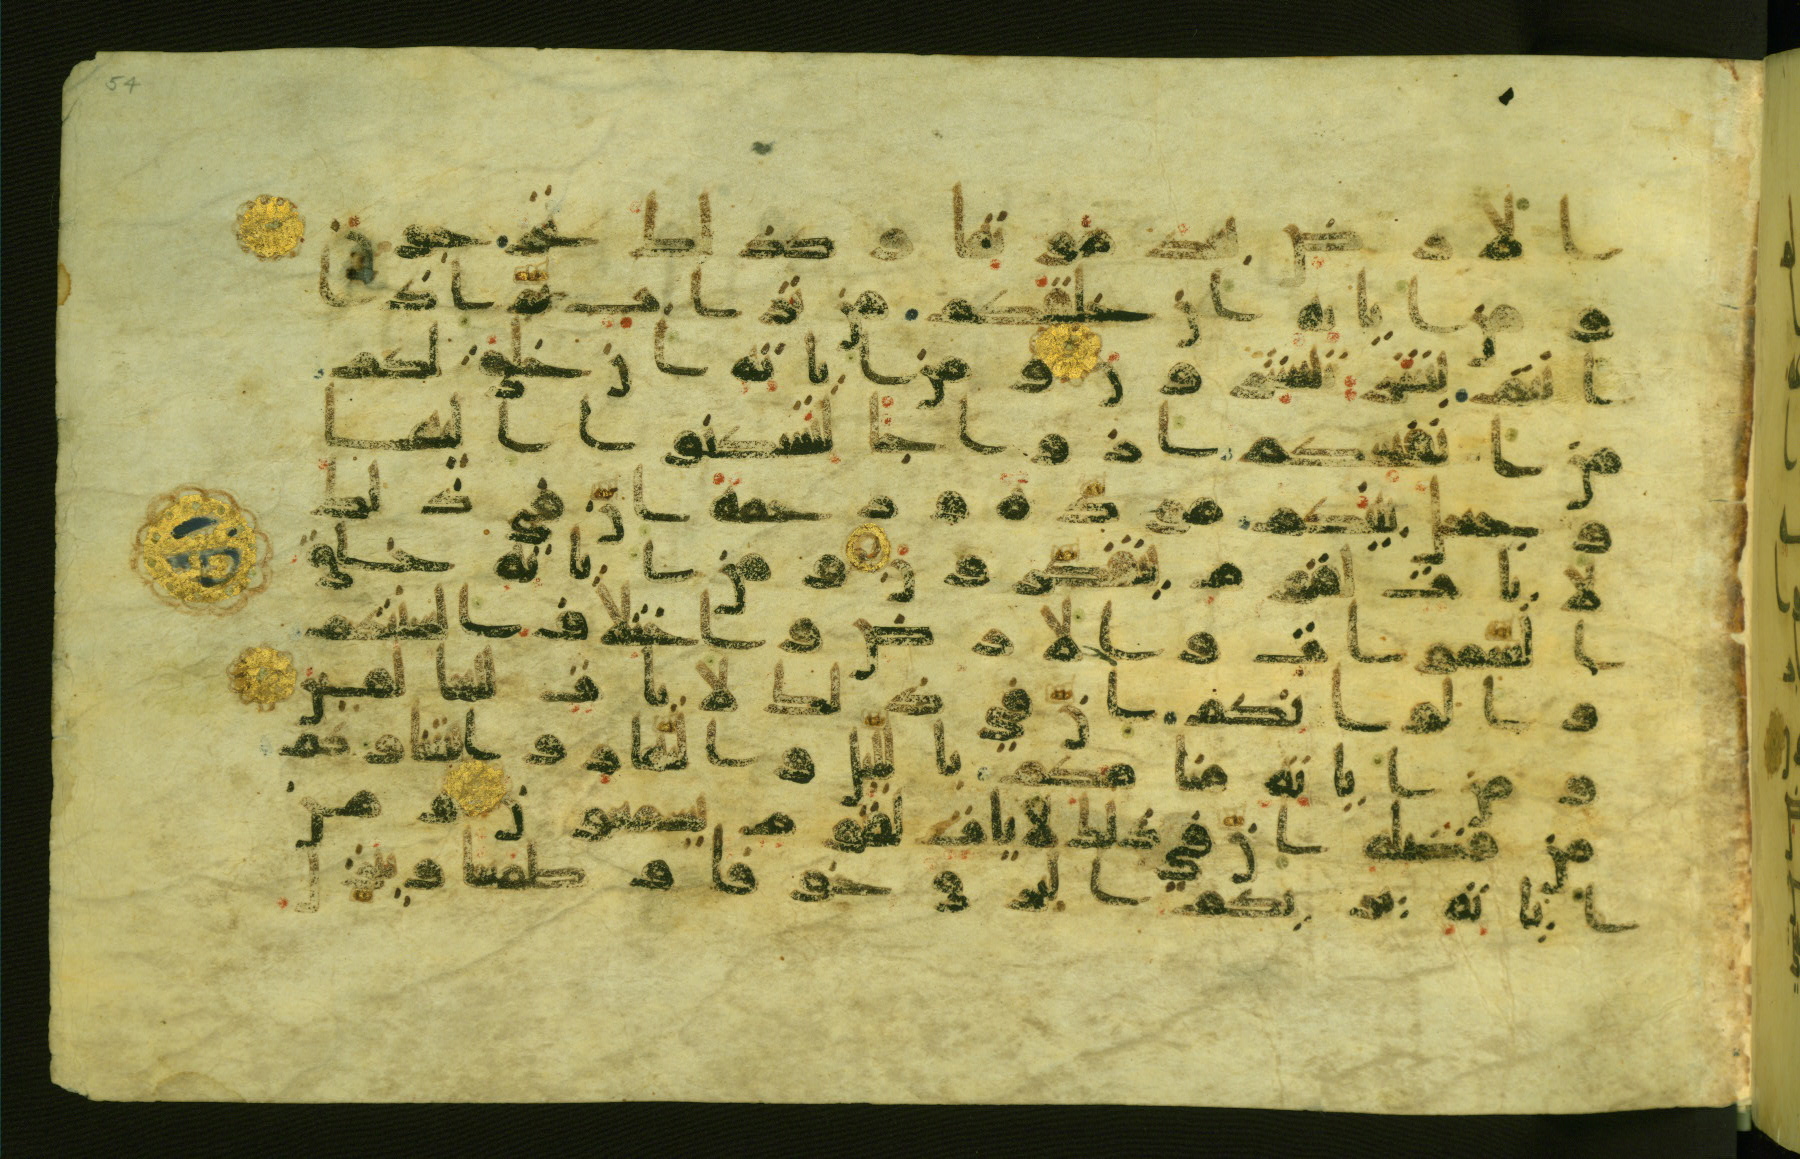 54
الارض بعد موتها وكذلك تخرجون
ومن اياته ان خلقكم من تراب ثم اذا
انتم بشر تنتشرون ومن اياته ان خلق لكم
من انفسكم ازواجا لتسكنوا اليها
وجعل بينكم مودة ورحمة ان في ذلك
لايات لقوم يتفكرون ومن اياته خلق
السموات والارض واختلاف السنتكم
والوانكم ان في ذلك لايات للعالمين
ومن اياته منامكم باليل والنهار وابتغاوكم
من فضله ان في ذلك لايات لقوم يسمعون ومن
اياته يريكم البرق خوفا وطمعا وينزل